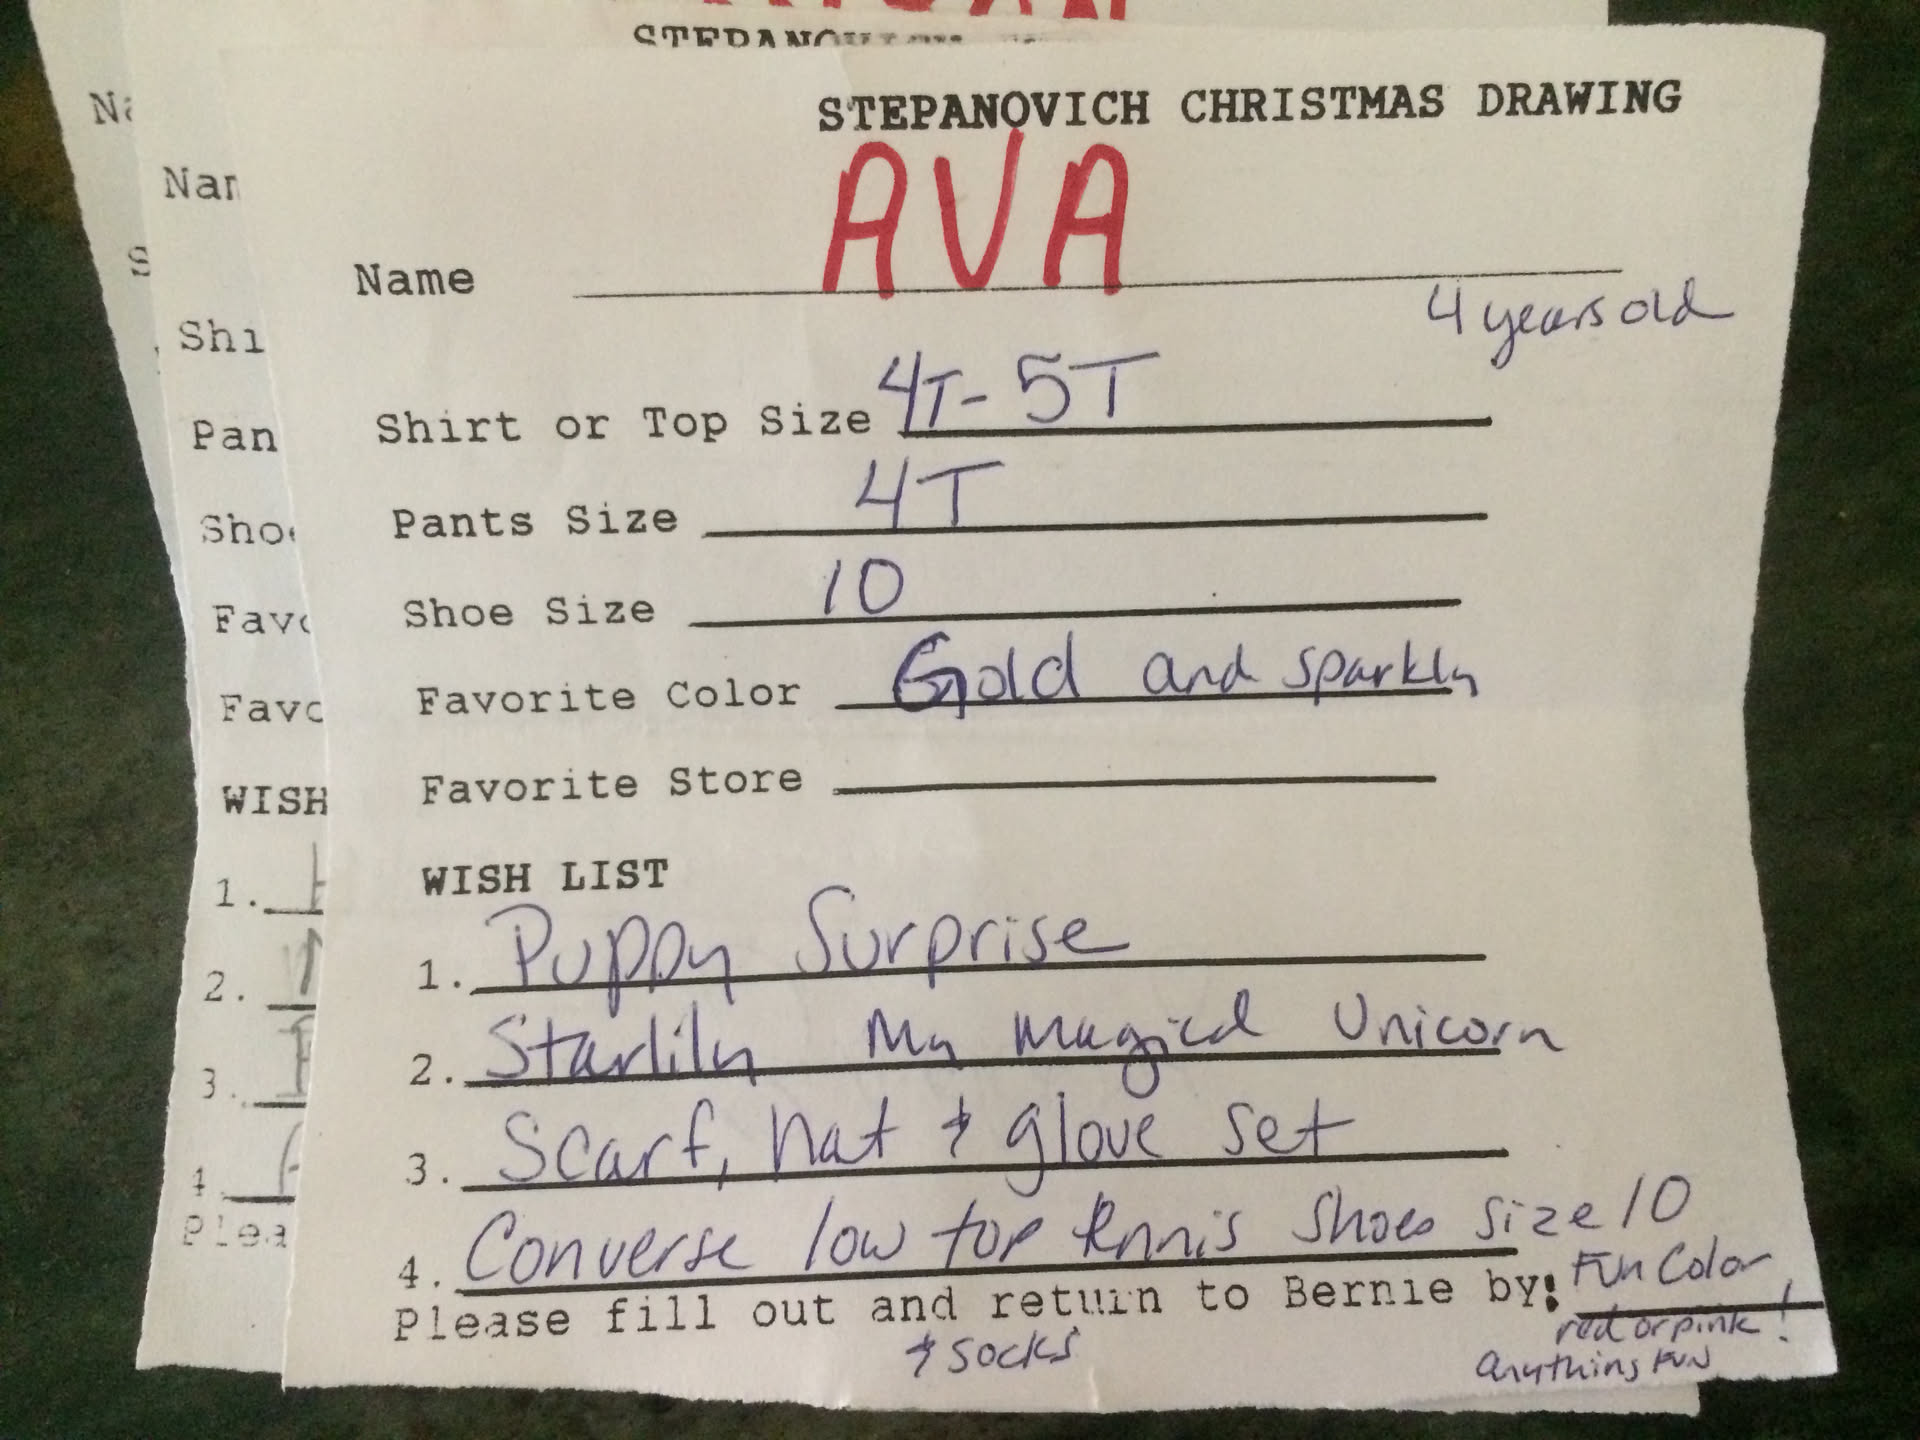 STEPANOVICH CHRISTMAS DRAWING
Name AVA
4 years old
Shirt or Top Size 4T-5T
Pants Size 4T
Shoe Size 10
Favorite Color Gold and sparkly
Favorite Store
WISH LIST
1. Puppy Surprise
2. Starlily My Magical Unicorn
3. Scarf, hat & glove set
4. Converse low top tennis shoes size 10
Fun Color
Please fill out and return to Bernie by:
red or pink!
& socks
anything FUN
Na
Nar
S
Shi
Pan
Sho
Favo
Favo
WISH
1.
2.
3.
4
Plea